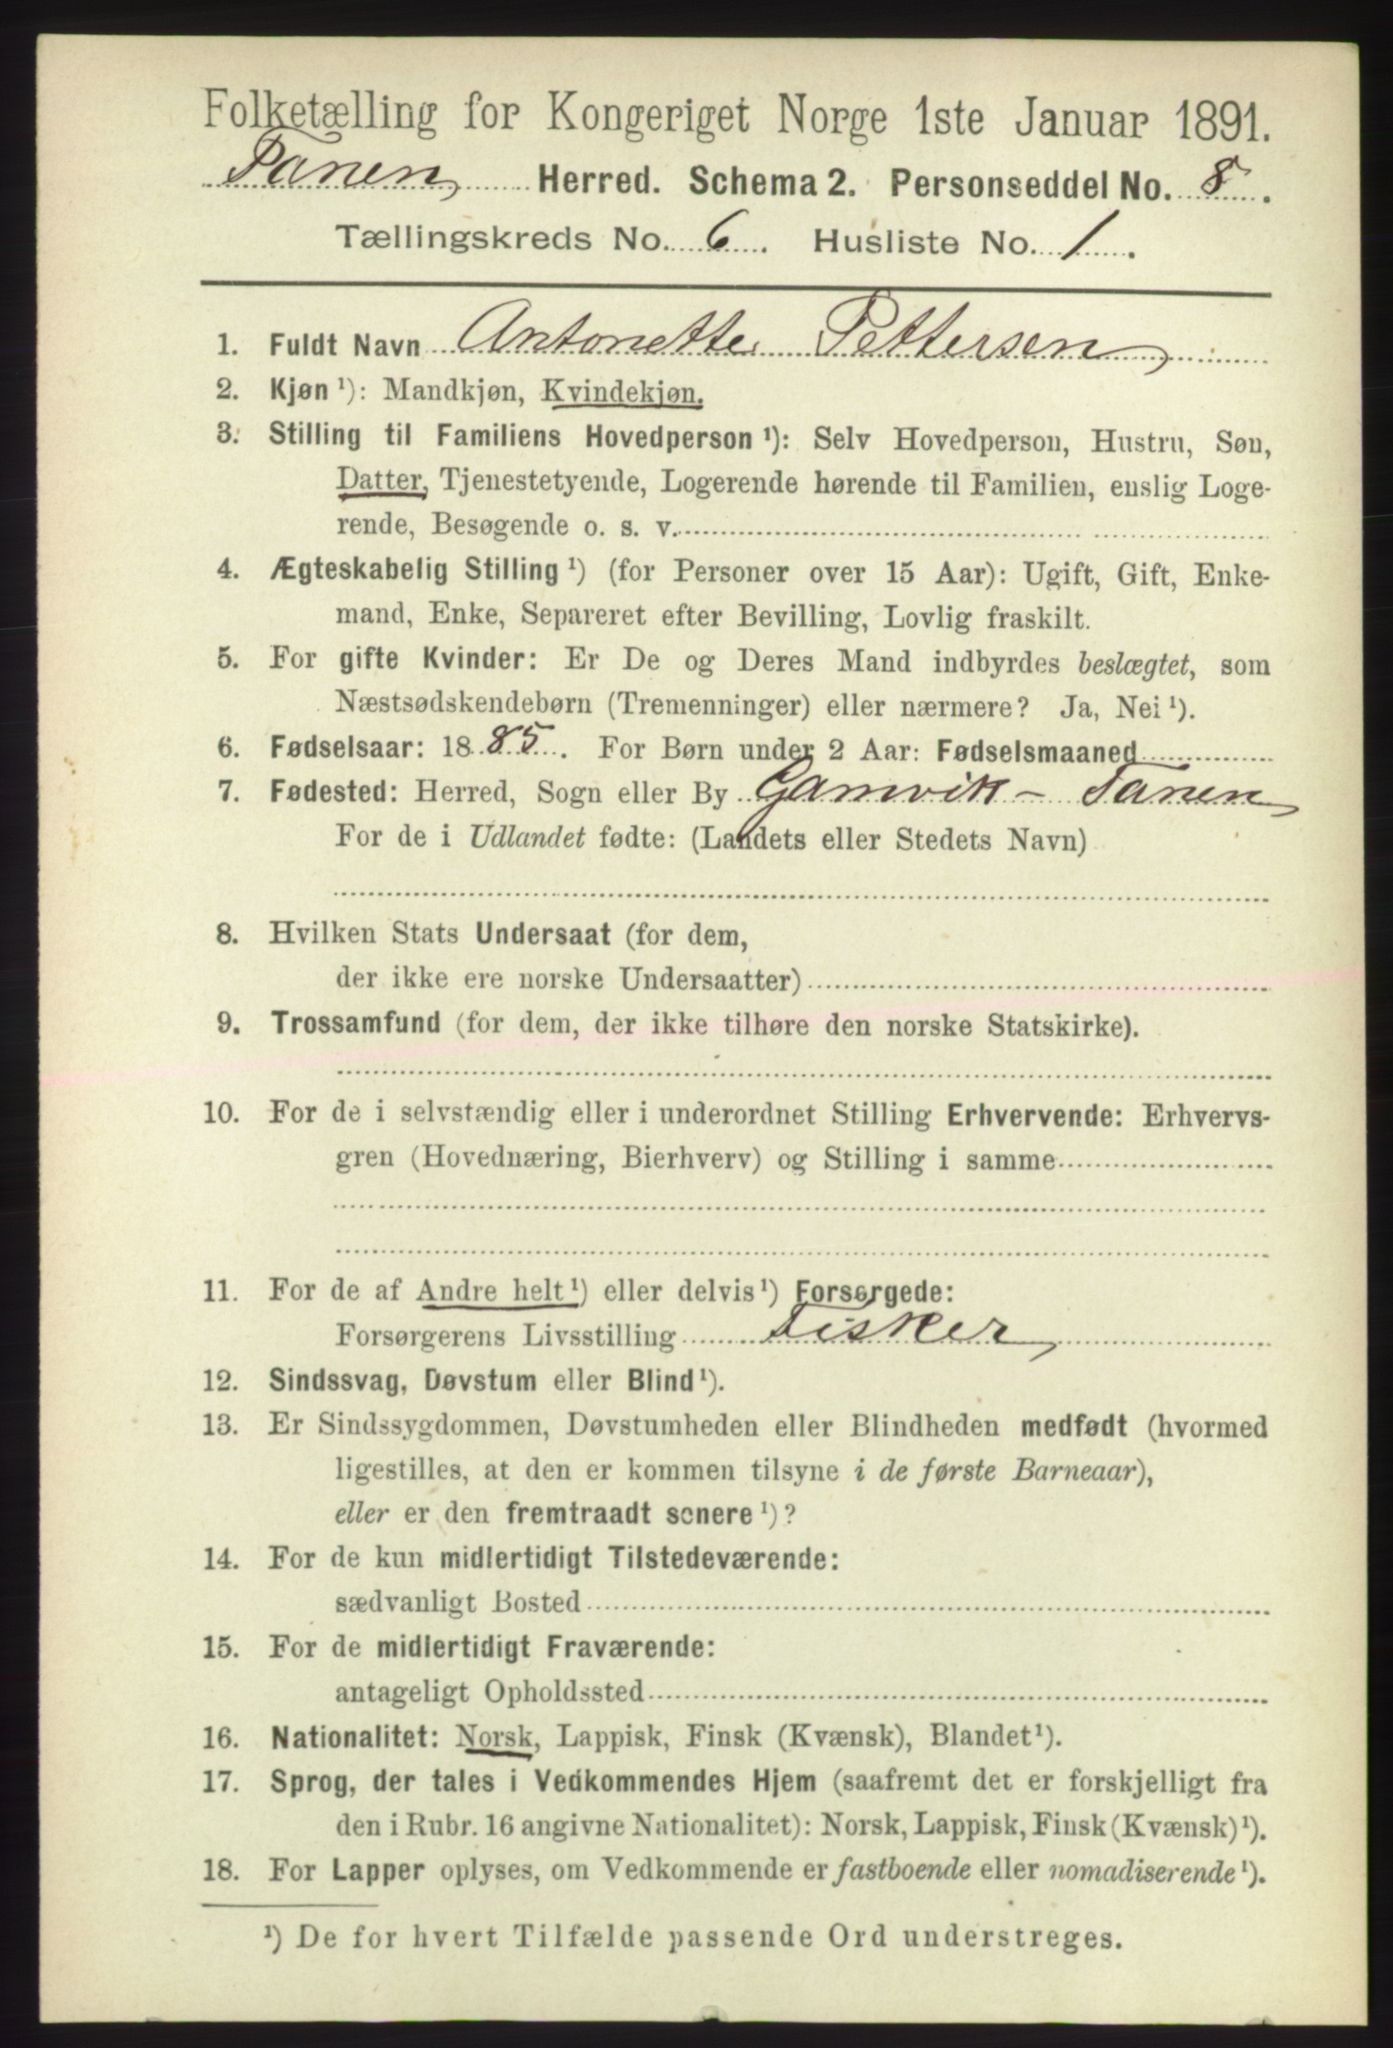 Folketælling for Kongeriget Norge 1ste Januar 1891.
Tanen Herred. Schema 2. Personseddel No. 8.
Tællingskreds No. 6. Husliste No. 1.
1. Fuldt Navn Antonette Pettersen
2. Kjøn ¹): Mandkjøn, Kvindekjøn.
3. Stilling til Familiens Hovedperson ¹): Selv Hovedperson, Hustru, Søn,
Datter, Tjenestetyende, Logerende hørende til Familien, enslig Loge-
rende, Besøgende o. s. v.
4. Ægteskabelig Stilling ¹) (for Personer over 15 Aar): Ugift, Gift, Enke-
mand, Enke, Separeret efter Bevilling, Lovlig fraskilt.
5. For gifte Kvinder: Er De og Deres Mand indbyrdes beslægtet, som
Næstsødskendebørn (Tremenninger) eller nærmere? Ja, Nei ¹).
6. Fødselsaar: 1885. For Børn under 2 Aar: Fødselsmaaned
7. Fødested: Herred, Sogn eller By Gamvik - Tanen
For de i Udlandet fødte: (Landets eller Stedets Navn)
8. Hvilken Stats Undersaat (for dem,
der ikke ere norske Undersaatter)
9. Trossamfund (for dem, der ikke tilhøre den norske Statskirke).
10. For de i selvstændig eller i underordnet Stilling Erhvervende: Erhvervs-
gren (Hovednæring, Bierhverv) og Stilling i samme
11. For de af Andre helt ¹) eller delvis ¹) Forsørgede:
Forsørgerens Livsstilling Fisker
12. Sindssvag, Døvstum eller Blind ¹).
13. Er Sindssygdommen, Døvstumheden eller Blindheden medfødt (hvormed
ligestilles, at den er kommen tilsyne i de første Barneaar),
eller er den fremtraadt senere ¹)?
14. For de kun midlertidigt Tilstedeværende:
sædvanligt Bosted
15. For de midlertidigt Fraværende:
antageligt Opholdssted
16. Nationalitet: Norsk, Lappisk, Finsk (Kvænsk), Blandet ¹).
17. Sprog, der tales i Vedkommendes Hjem (saafremt det er forskjelligt fra
den i Rubr. 16 angivne Nationalitet): Norsk, Lappisk, Finsk (Kvænsk) ¹).
18. For Lapper oplyses, om Vedkommende er fastboende eller nomadiserende ¹).
¹) De for hvert Tilfælde passende Ord understreges.